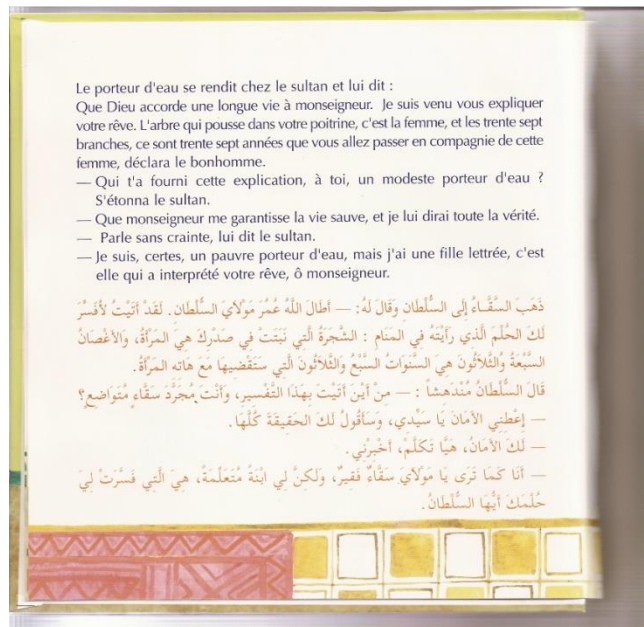 Le porteur d'eau se rendit chez le sultan et lui dit :
Que Dieu accorde une longue vie à monseigneur. Je suis venu vous expliquer
votre rêve. L'arbre qui pousse dans votre poitrine, c'est la femme, et les trente sept
branches, ce sont trente sept années que vous allez passer en compagnie de cette
femme, déclara le bonhomme.
— Qui t'a fourni cette explication, à toi, un modeste porteur d'eau ?
S'étonna le sultan.
— Que monseigneur me garantisse la vie sauve, et je lui dirai toute la vérité.
— Parle sans crainte, lui dit le sultan.
— Je suis, certes, un pauvre porteur d'eau, mais j'ai une fille lettrée, c'est
elle qui a interprété votre rêve, ô monseigneur.
ذَهَبَ السَّقَّاءُ إِلَى السُّلْطَانِ وَقَالَ لَهُ: — أَطَالَ اللَّهُ عُمُرَ مَوْلَايَ السُّلْطَانِ. لَقَدْ أَتَيْتُ لأُفَسِّرَ
لَكَ الحُلْمَ الَّذِي رَأَيْتَهُ فِي المَنَامِ : الشَّجَرَةُ الَّتِي نَبَتَتْ فِي صَدْرِكَ هِيَ المَرْأَةُ، وَالأَغْصَانُ
السَّبْعَةُ وَالثَّلاَثُونَ هِيَ السَّنَوَاتُ السَّبْعُ وَالثَّلاَثُونَ الَّتِي سَتَقْضِيهَا مَعَ هَاتِهِ المَرْأَةِ.
قَالَ السُّلْطَانُ مُنْدَهِشاً : — مِنْ أَيْنَ أَتَيْتَ بِهَذَا التَّفْسِيرِ، وَأَنْتَ مُجَرَّدُ سَقَّاءٍ مُتَوَاضِعٍ؟
— إِعْطِنِي الأَمَانَ يَا سَيِّدِي، وَسَأَقُولُ لَكَ الحَقِيقَةَ كُلَّهَا.
— لَكَ الأَمَانُ، هَيَّا تَكَلَّمْ، أَخْبِرْنِي.
— أَنَا كَمَا تَرَى يَا مَوْلاَيَ سَقَّاءٌ فَقِيرٌ، وَلَكِنْ لِي ابْنَةٌ مُتَعَلِّمَةٌ، هِيَ الَّتِي فَسَّرَتْ لِيَ
حُلْمَكَ أَيُّهَا السُّلْطَانُ.